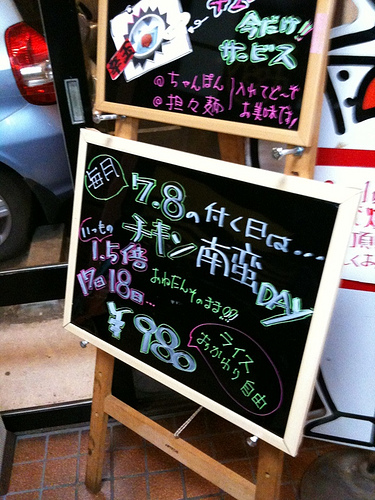 今だけ!!
サービス
@ちゃんぽん
@担々麺
入れてど〜ぞ
お美味です!
毎月
7.8の付く日は…
チキン南蛮DAY
いつもの
1.5倍
おねだんそのまま!!
17日18日…
¥980
ライス
おかわり
自由